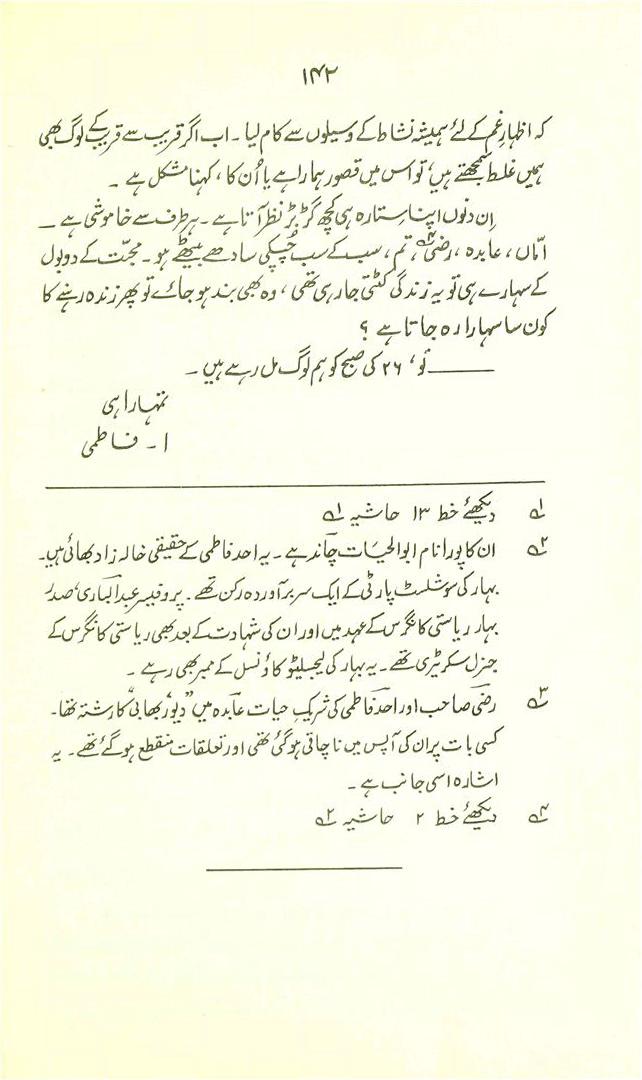 ۱۴۲
کہ اظہارِ غم کے لئے ہمیشہ نشاط کے وسیلوں سے کام لیا ۔ اب اگر قریب سے قریب کے لوگ بھی
ہمیں غلط سمجھتے ہیں، تو اس میں قصور ہمارا ہے یا اُن کا ، کہنا مشکل ہے ۔
اِن دنوں اپنا ستارہ ہی کچھ گڑبڑ نظر آتا ہے ۔ ہر طرف سے خاموشی ہے ۔
امّاں ، عابدہ ، رضی۴؎ ، تم ، سب کے سب چُپکی سادھے بیٹھے ہو ۔ محبّت کے دو بول
کے سہارے ہی تو یہ زندگی کٹتی جارہی تھی ، وہ بھی بند ہو جائے تو پھر زندہ رہنے کا
کون سا سہارا رہ جاتا ہے ؟
——— تو، ۲۶ کی صبح کو ہم لوگ مل رہے ہیں ۔
تمہارا ہی
ا ۔ فاطمی
۱؎ دیکھئے خط ۱۳ حاشیہ ۱؎
۲؎ ان کا پورا نام ابوالحیات چاند ہے ۔ یہ احد فاطمی کے حقیقی خالہ زاد بھائی ہیں۔
بہار کی سوشلسٹ پارٹی کے ایک سربرآوردہ رکن تھے ۔ پروفیسر عبدالباری، صدر
بہار ریاستی کانگرس کے عہد میں اور ان کی شہادت کے بعد بھی ریاستی کانگرس کے
جنرل سکریٹری تھے ۔ یہ بہار کی لیجسلیٹو کاؤنسل کے ممبر بھی رہے ۔
۳؎ رضی صاحب اور احد فاطمی کی شریکِ حیات عابدہ میں "دیور بھابی" کا رشتہ تھا۔
کسی بات پر ان کی آپس میں ناچاقی ہوگئی تھی اور تعلقات منقطع ہوگئے تھے ۔ یہ
اشارہ اسی جانب ہے ۔
۴؎ دیکھئے خط ۲ حاشیہ ۲؎